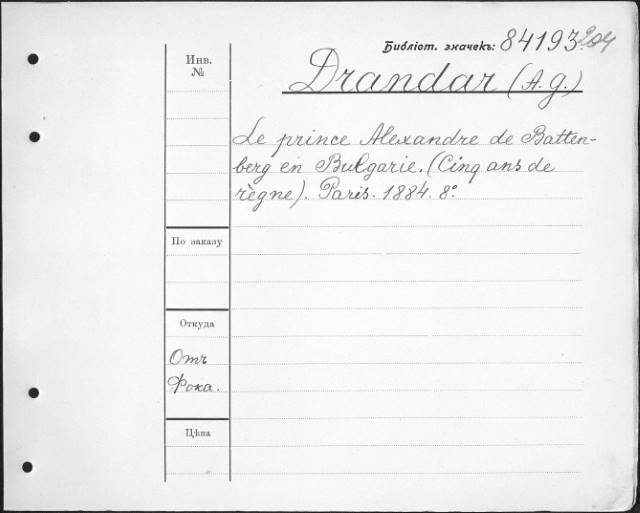 Библіот. значекъ: 84193
204
Инв. №
Drandar (A. G.)
Le prince Alexandre de Batten-
berg en Bulgarie. (Cinq ans de
règne). Paris. 1884. 8º.
По заказу
Откуда
Отъ
Фока.
Цѣна